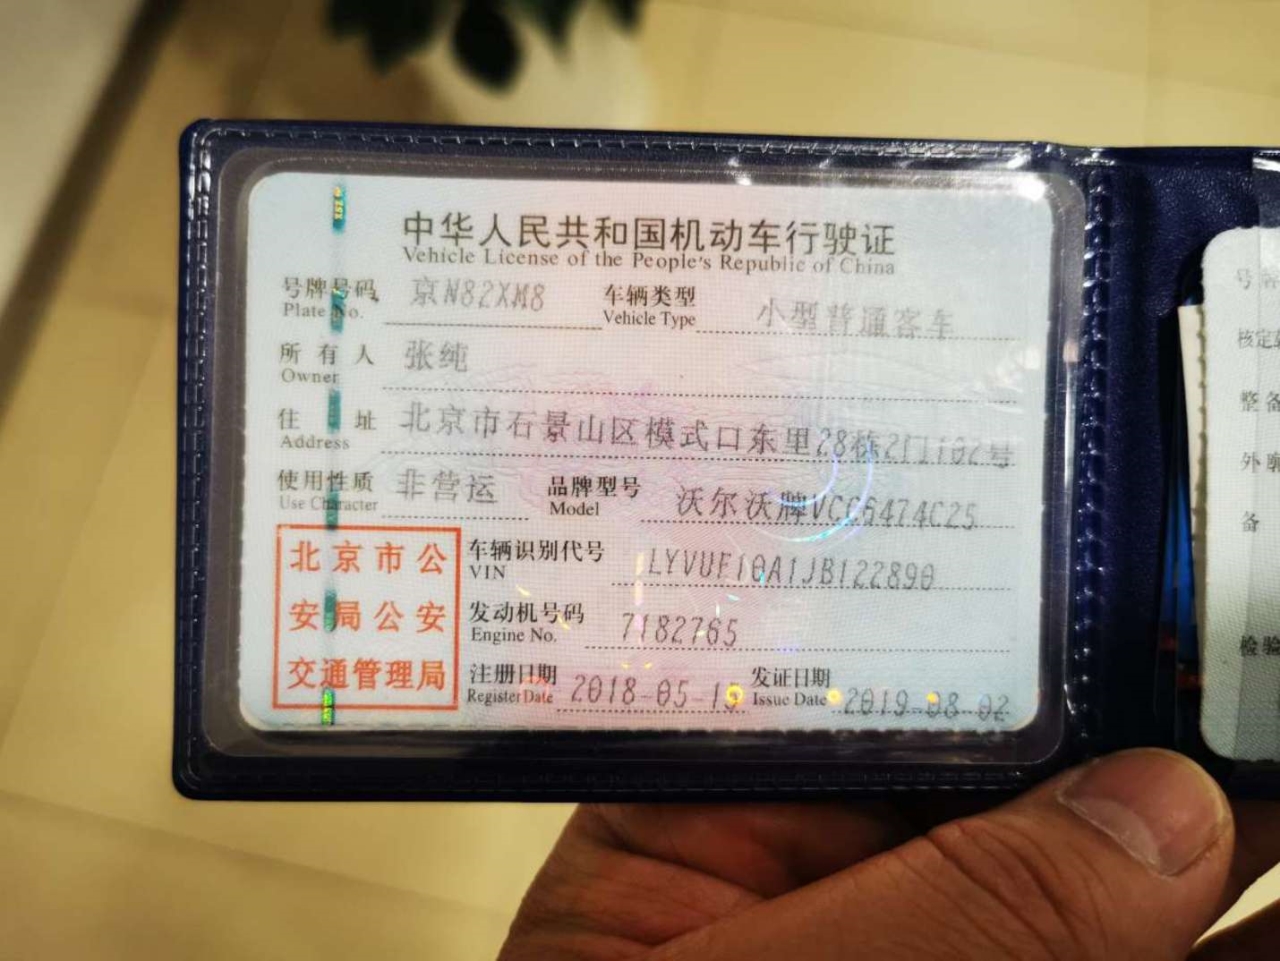 中华人民共和国机动车行驶证
Vehicle License of the People's Republic of China
号牌号码 京N82XM8 车辆类型 小型普通客车
Plate No. Vehicle Type
所有人 张纯
Owner
住址 北京市石景山区模式口东里28栋
Address
使用性质 非营运 品牌型号 沃尔沃牌VCC6474C25
Use Character Model
北京市公
安局公安
交通管理局
车辆识别代号 LYVUF10A1JB122890
VIN
发动机号码 7182765
Engine No.
注册日期 发证日期 2019-08-02
Register Date Issue Date
号牌
核定
整备
外廓
备
检验